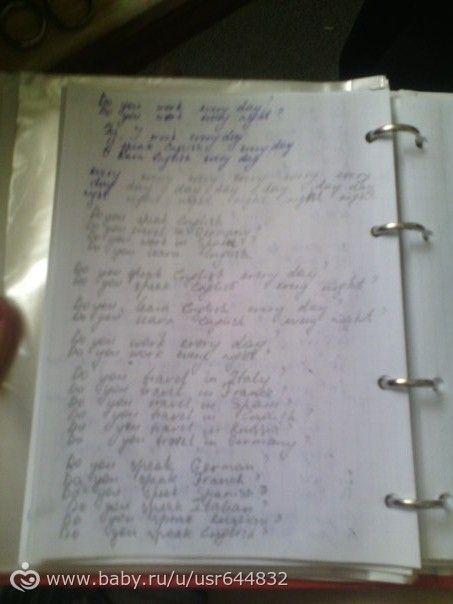 Do you work every day?
Do you work every night?
I work every day
I speak English every day
learn English every day
every every every every every every
day day day day day day day
night night night night night night
Do you speak English
Do you travel in Germany?
Do you work in Spain?
Do you learn English
Do you speak English every day?
Do you speak English every night?
Do you learn English every day?
Do you learn English every night?
Do you work every day?
Do you work every night?
Do you travel in Italy?
Do you travel in France?
Do you travel in Spain?
Do you travel in
Do you travel in Russia?
Do you travel in Germany?
Do you speak German?
Do you speak French?
Do you speak Spanish?
Do you speak Italian?
Do you speak Russian?
Do you speak English?
www.baby.ru/u/usr644832